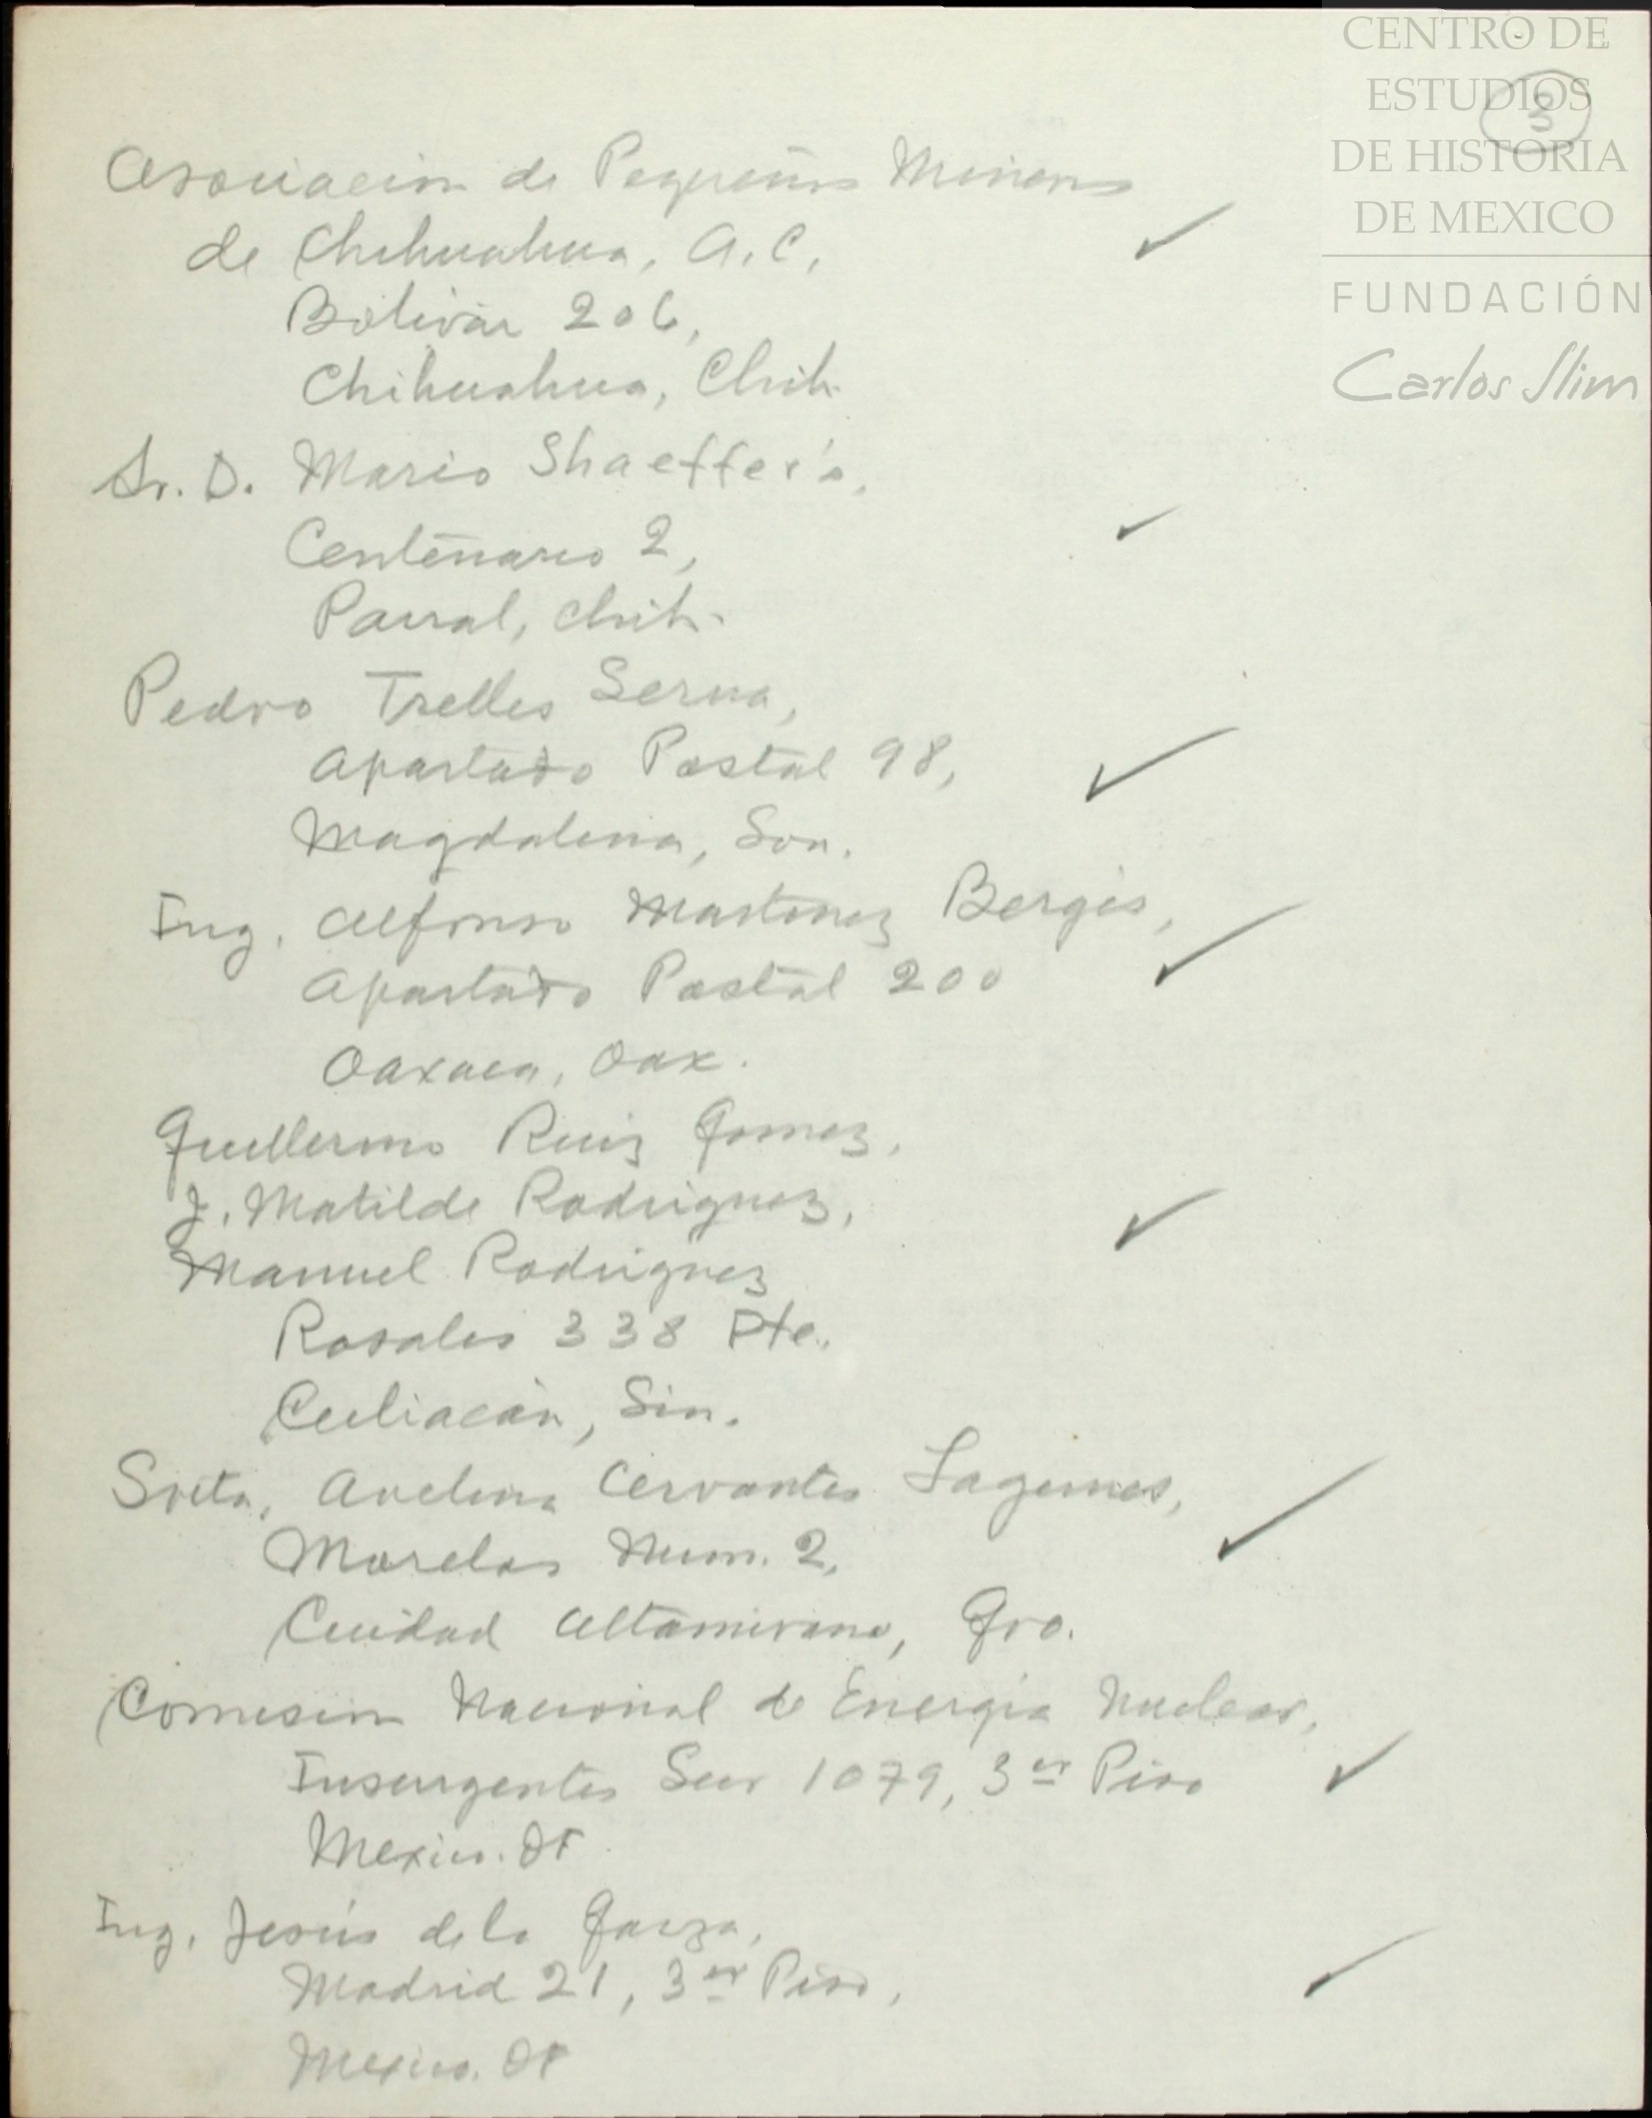 CENTRO DE
ESTUDIOS
DE HISTORIA
DE MEXICO
FUNDACIÓN
Carlos Slim
3
Asociacion de Pequeños Mineros ✓
de Chihuahua, A.C.,
Bolivar 206,
Chihuahua, Chih.
Sr. D. Mario Shaeffer's,
Centenario 2, ✓
Parral, Chih.
Pedro Trelles Serna,
Apartado Postal 98, ✓
Magdalena, Son.
Ing. Alfonso Martinez Bergés,
Apartado Postal 200 ✓
Oaxaca, Oax.
Guillermo Ruiz Gomez,
J. Matilde Rodriguez, ✓
Manuel Rodriguez
Rosales 338 Pte.
Culiacán, Sin.
Srita. Avelina Cervantes Lagunas,
Morelos Num. 2, ✓
Ciudad Altamirano, Gro.
Comision Nacional de Energia Nuclear,
Insurgentes Sur 1079, 3er Piso ✓
Mexico. DF
Ing. Jesús de la Garza,
Madrid 21, 3er Piso, ✓
Mexico. DF